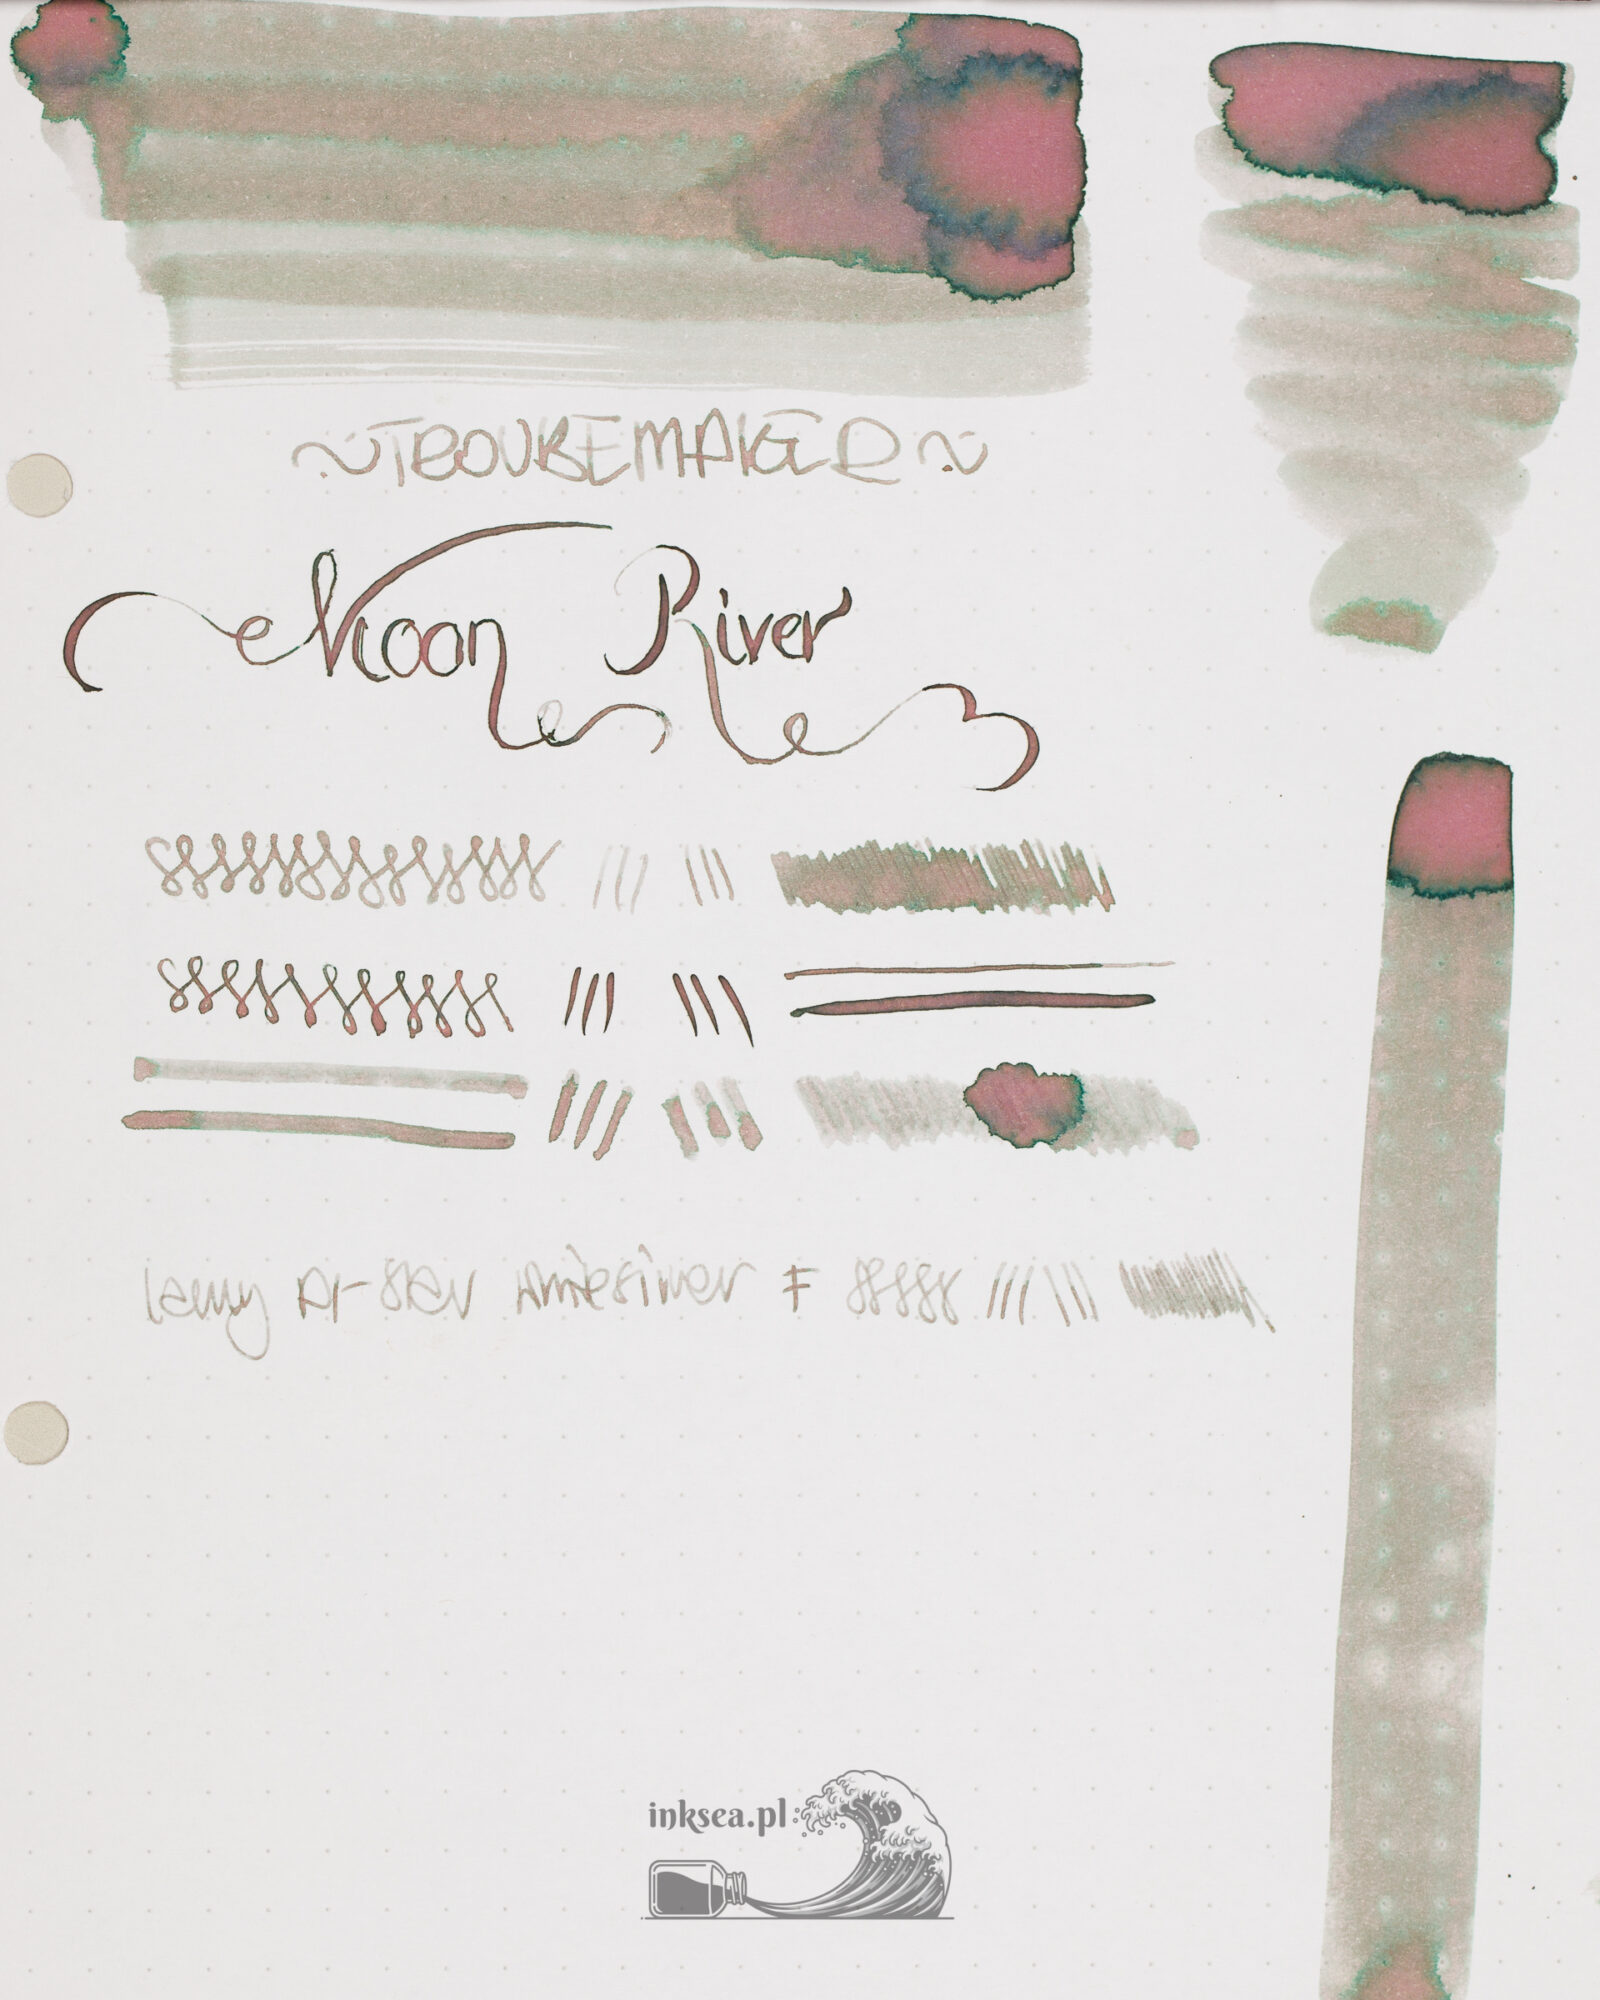 ~TROUBEMAKER~
Moon River
Lamy Al-Star Whitesilver F
inksea.pl